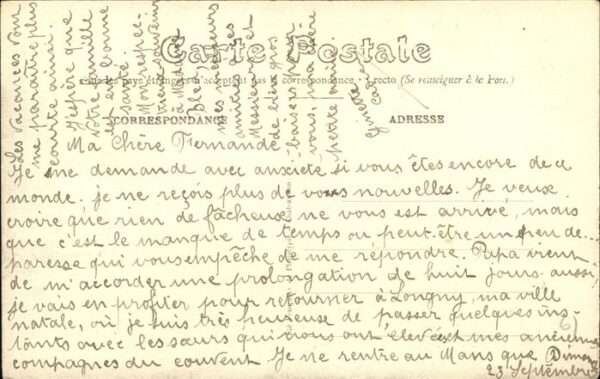 Carte Postale
CORRESPONDANCE
ADRESSE
Ma Chère Fernande
Je me demande avec anxiété si vous êtes encore de ce
monde. je ne reçois plus de vous nouvelles. Je veux
croire que rien de fâcheux ne vous est arrivé, mais
que c'est le manque de temps ou peut-être un peu de...
paresse qui vous empêche de me répondre. Papa vient
de m'accorder une prolongation de huit jours aussi
je vais en profiter pour retourner à Longny, ma ville
natale, où je suis très heureuse de passer quelques ins-
tants avec les sœurs qui nous ont élevé et mes anciennes
compagnes du couvent Je ne rentre au Mans que Dimanc
23 Septembre
Les vacances vont
me paraître plus
courte ainsi.
J'espère que
votre famille
est en bonne
santé.
Mon respec-
tueux souvenir
à Mme
mes meilleurs
amitiés à ces
Messieurs et
de bien gros
baisers pour
vous, ma chère
petite amie